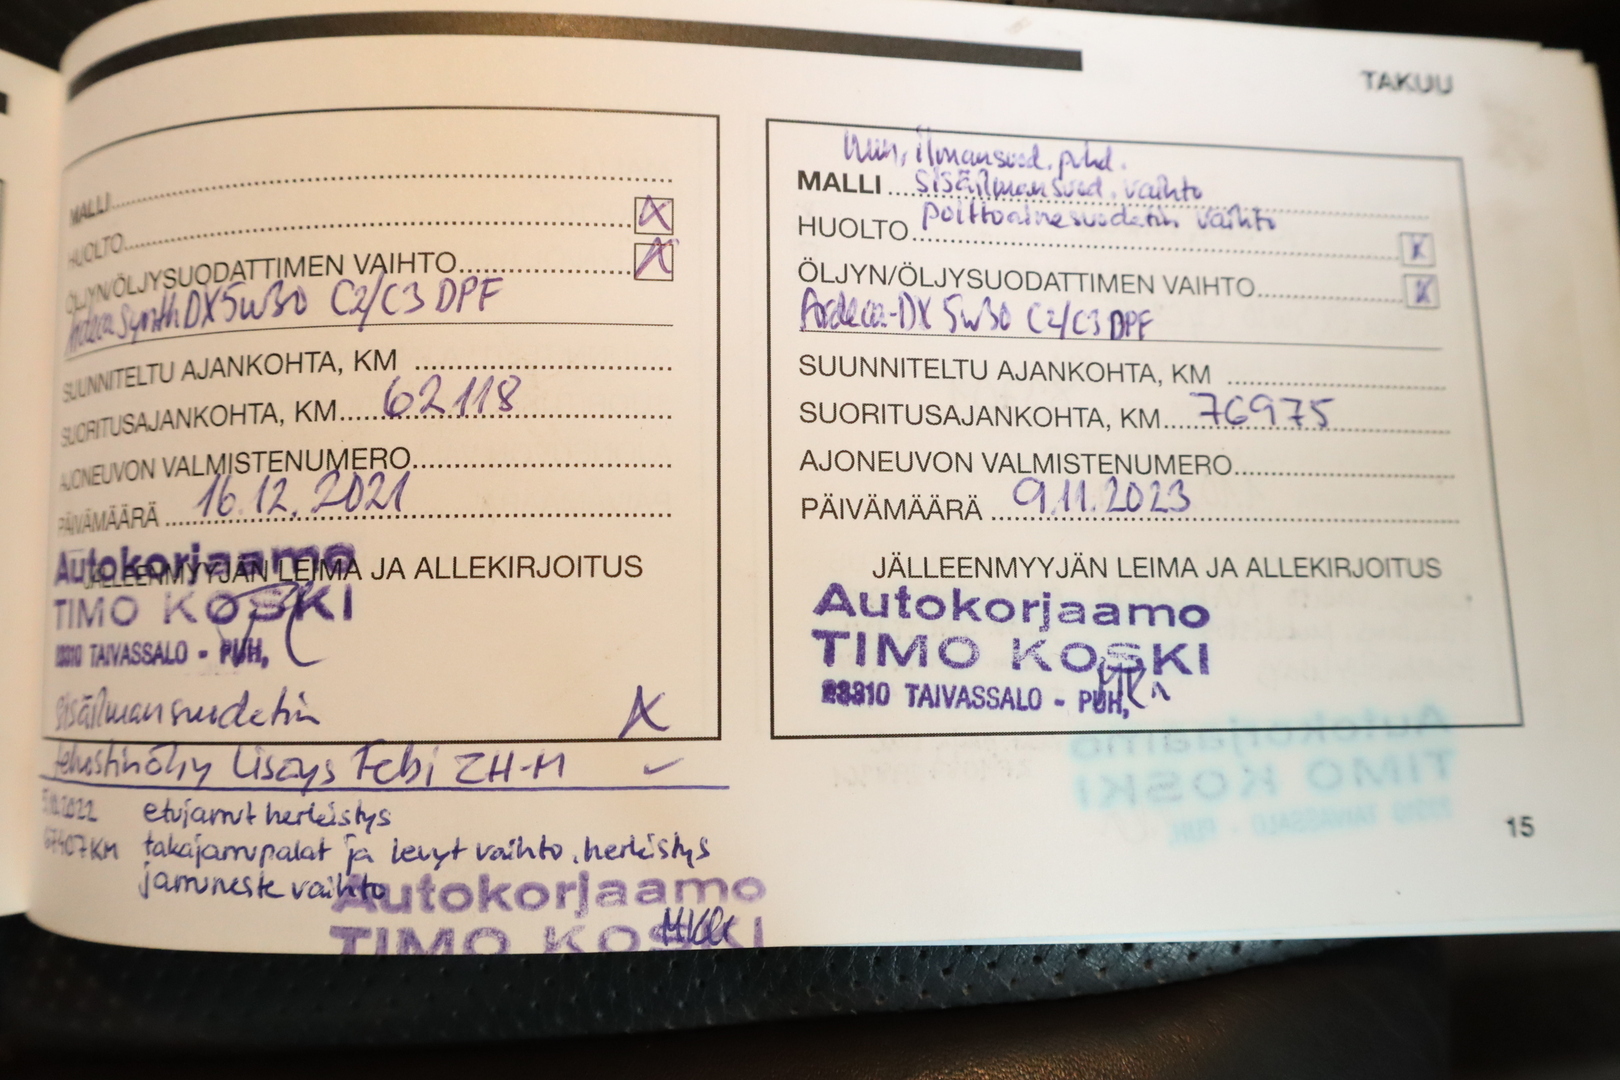 TAKUU
MALLI
HUOLTO X
ÖLJYN/ÖLJYSUODATTIMEN VAIHTO X
Ardeca Synth DX 5W30 C2/C3 DPF
SUUNNITELTU AJANKOHTA, KM
SUORITUSAJANKOHTA, KM 62118
AJONEUVON VALMISTENUMERO
PÄIVÄMÄÄRÄ 16.12.2021
JÄLLEENMYYJÄN LEIMA JA ALLEKIRJOITUS
Autokorjaamo
TIMO KOSKI
23310 TAIVASSALO - PUH,
Sisäilmansuodatin X
lisäys Febi ZH-M
67407KM
etujarrut herkistys
takajarrupalat ja levyt vaihto, herkistys
jarruneste vaihto
Autokorjaamo
TIMO KOSKI
ilmansuod. puhd.
MALLI sisäilmansuod. vaihto
HUOLTO polttoainesuodatin vaihto X
ÖLJYN/ÖLJYSUODATTIMEN VAIHTO X
Ardeca-DX 5W30 C2/C3 DPF
SUUNNITELTU AJANKOHTA, KM
SUORITUSAJANKOHTA, KM 76975
AJONEUVON VALMISTENUMERO
PÄIVÄMÄÄRÄ 9.11.2023
JÄLLEENMYYJÄN LEIMA JA ALLEKIRJOITUS
Autokorjaamo
TIMO KOSKI
23310 TAIVASSALO - PUH,
15